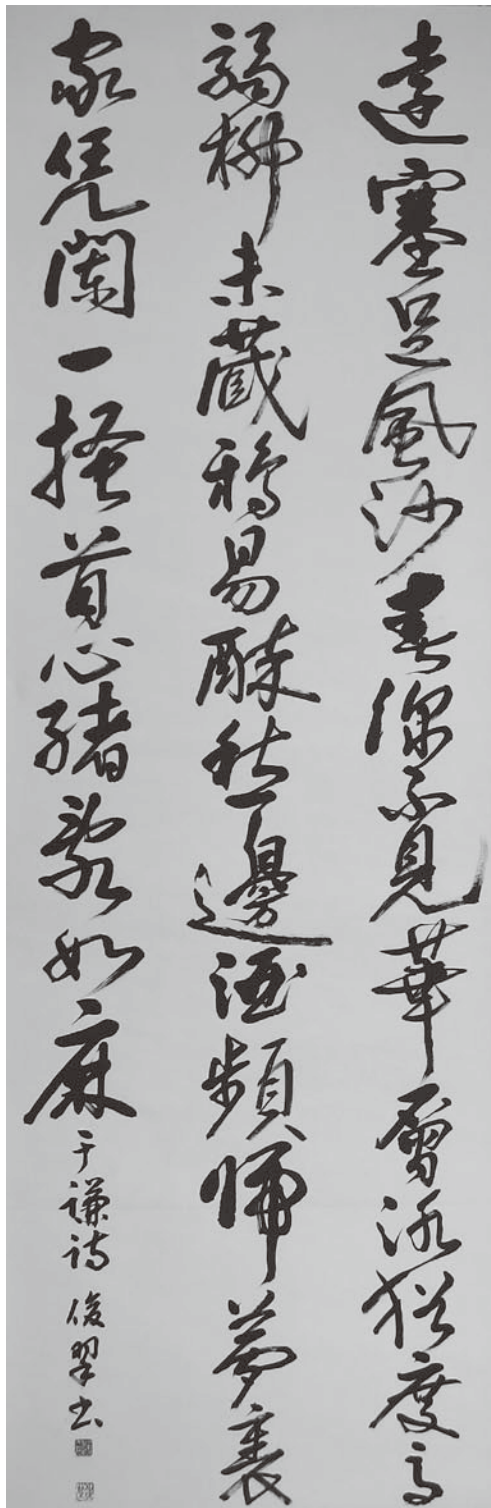 遠塞足風沙春深不見華層冰猶度馬
弱柳未藏鴉易醉愁邊酒頻歸夢裏
家凭闌一搔首心緒亂如麻于謙詩 俊翠書